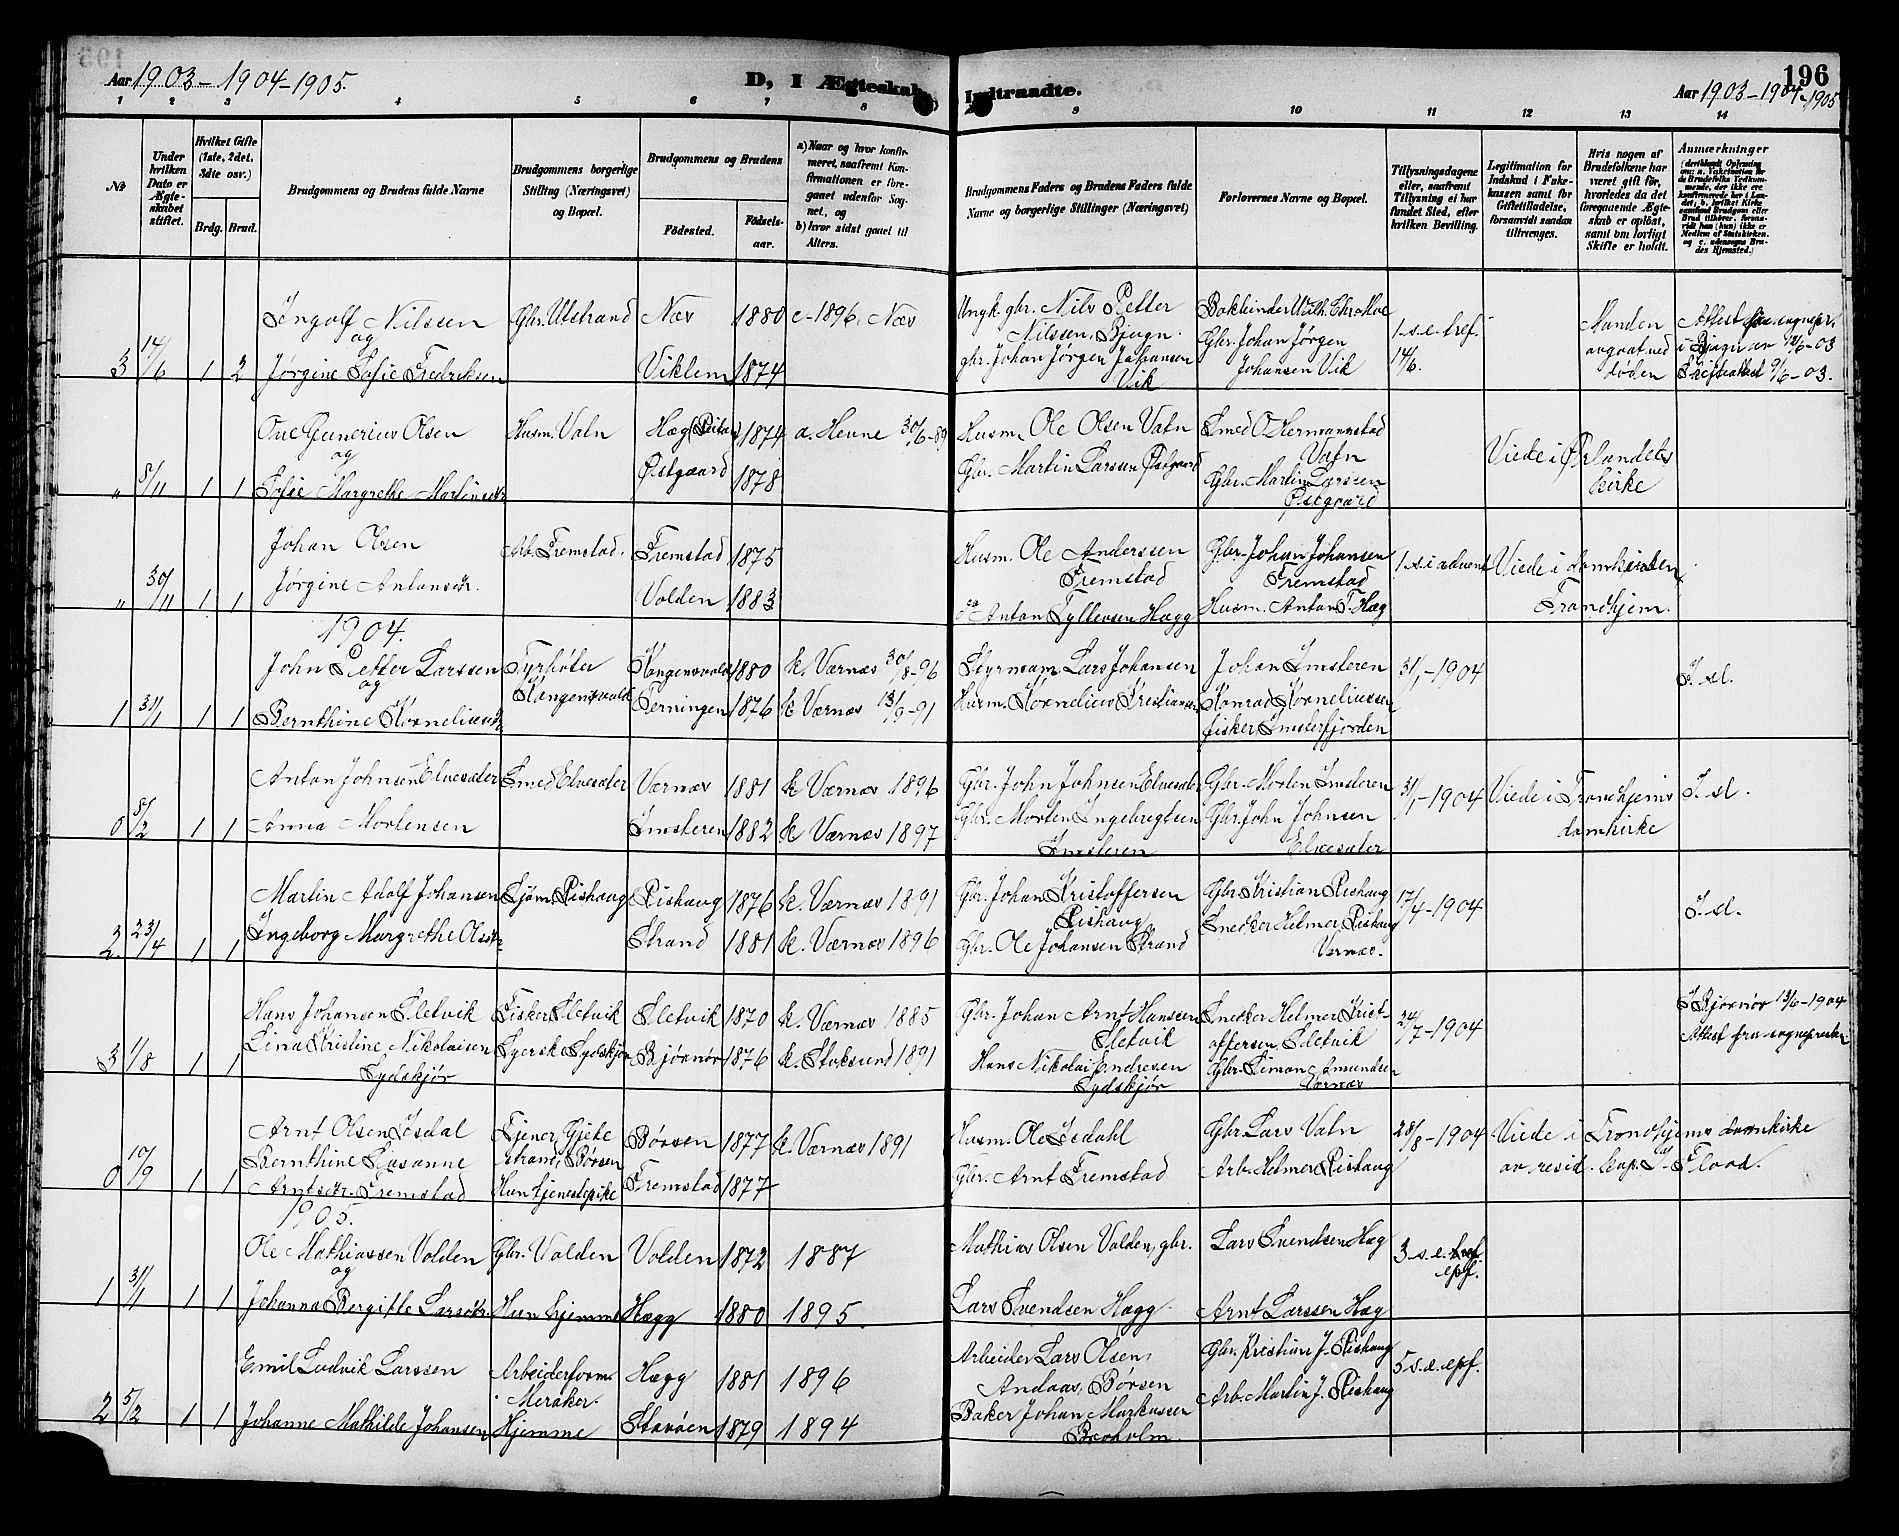 Aar 1903-1904-1905.
D, I Ægteskab
Indtraadte.
196
Aar 1903-1904-1905
1 2 3 4 5 6 7 8 9 10 11 12 13 14
№
Under hvilken Dato er Ægteskabet stiftet.
Hvilket Gifte (1ste, 2det, 3die osv.)
Brdg. Brud.
Brudgommens og Brudens fulde Navne
Brudgommens borgerlige Stilling (Næringsvei) og Bopæl.
Brudgommens og Brudens
Fødested. Fødselsaar.
a) Naar og hvor konfirmeret, saafremt Konfirmationen er foregaaet udenfor Sognet, og
b) hvor sidst gaaet til Alters.
Brudgommens Faders og Brudens Faders fulde Navne og borgerlige Stillinger (Næringsvei)
Forlovernes Navne og Bopæl.
Tillysningsdagene eller, saafremt Tillysning ei har fundet Sted, efter hvilken Bevilling.
Legitimation for Indskud i Enkekassen samt for Giftetilladelse, forsaavidt saadan tiltrænges.
Hvis nogen af Brudefolkene har været gift før, hvorledes da det foregaaende Ægteskab er opløst, samt om lovligt Skifte er holdt.
Anmærkninger
3 14/6 1 2 Ingolf Nilssen og Jørgine Sofie Fredriksen
Gbr. Utstrand
Næs 1880 c-1896, Næs
Viklem 1874
Ungk. gbr. Nils Petter Nilssen, Bjugn.
gbr. Johan Jørgen Johansen Vik
Bokbinder Wilh. Chr. Moe
Gbr. Johan Jørgen Johansen Vik
1. s. e. tref. 14/6.
Manden avgaat ved døden
Attest fra sognepr. i Bjugn av 12/6-03
Skifteattest 9/6-03.
" 8/11 1 1 Ove Gunerius Olsen og Sofie Margrethe Martinsdtr
Husm. Valn
Hæg 1874 a. Hevne 30/6-89
Østgaard 1878
Husm. Ole Olsen Valn
Gbr. Martin Larssen Østgaard
Smed O. Hermannstad Valn
Gbr. Martin Larssen Østgaard
Viede i Ørlandets kirke
" 30/11 1 1 Johan Olsen
Jørgine Antonsdtr.
Arb. Fremstad.
Fremstad 1875
Volden 1883
Husm. Ole Anderssen Fremstad
og Anton Tyllevsen Hægg
Gbr. Johan Johansen Fremstad
Husm. Anton T. Hæg
1. s. i advent
Viede i domkirken, Trondhjem.
1904.
1 31/1 1 1 John Petter Larssen og Bernthine Korneliusdtr
Fyrbøter Kongensvold
Kongensvold 1880 k. Værnæs 30/8-96
Terningen 1876 k. Værnæs 13/9-91
Styrmann Lars Johansen
Husm. Kornelius Kristiansen
Johan Imsteren
Konrad Korneliussen fisker Imsterfjorden
31/1-1904
I sd.
0 8/2 1 1 Anton Johnsen Elvesæter
Anna Mortensen
Smed Elvesæter
Værnæs 1881 k. Værnæs 1896
Imsteren 1882 k. Værnæs 1897
Gbr. John Johnsen Elvesæter
Gbr. Morten Ingebregtsen Imsteren
Gbr. Morten Imsteren
Gbr. John Johnsen Elvesæter
31/1-1904
Viede i Trondhjems domkirke
I sd.
2. 23/4 1 1 Martin Adolf Johansen
Ingeborg Margrethe Olsdtr.
Sjøm. Rishaug
Rishaug 1876 k. Værnæs 1891
Strand 1881 k. Værnæs 1896
Gbr. Johan Kristoffersen Rishaug
Gbr. Ole Johansen Strand
Gbr. Kristian Rishaug
Snedker Helmer Rishaug Værnæs.
17/4-1904
I sd.
3 11/8 1 1 Hans Johansen Sletvik
Lina Kristine Nikolaisen Sydskjør
Fisker Sletvik
Sydskjør
Sletvik 1870 k. Værnæs 1885
Bjørnør 1876 k. Stoksund 1891
Gbr. Johan Arnt Hanssen Sletvik
Hans Nikolai Endresen Sydskjør
Snedker Helmer Kristoffersen Sletvik
Gbr. Simon Amundsen Værnæs
24/7-1904
I Bjørnør 13/6-1904
Attest fra sognepresten
0 10/9 1 1 Arnt Olsen Isdal
Bernthine Susanne Arntsdtr. Fremstad
Tjener, Gjetestrand, Børsen
Hun tjenestepike
Børsen 1877 k. Værnæs 1891
Fremstad 1877
Husm. Ole Isdahl
Gbr. Arnt Fremstad
Gbr. Lars Valn
Arb. Helmer Rishaug
28/8-1904
Viede i Trondhjems domkirke av resid. kap. Flood.
1905.
1 31/1 1 1 Ole Mathiassen Volden og Johanna Bergitte Larsdtr
Gbr. Volden
Hun hjemme
Volden 1872 1887
Hægg 1880 1895.
Mathias Olsen Volden, gbr.
Lars Svendsen Hægg.
Lars Svendsen Hæg
Arnt Larssen Hæg
3. s. e. epf.
2 5/2 1 1 Emil Ludvik Larssen
Johanne Mathilde Johansen
Arbeiderform. Meraker.
Hjemme
Hægg 1881 1896
Storøen 1879 1894
Arbeider Lars Olsen, Andaas, Børsen
Baker Johan Markussen Broholm.
Gbr. Kristian J. Rishaug
Arb. Martin J. Rishaug
5. s. e. epf.